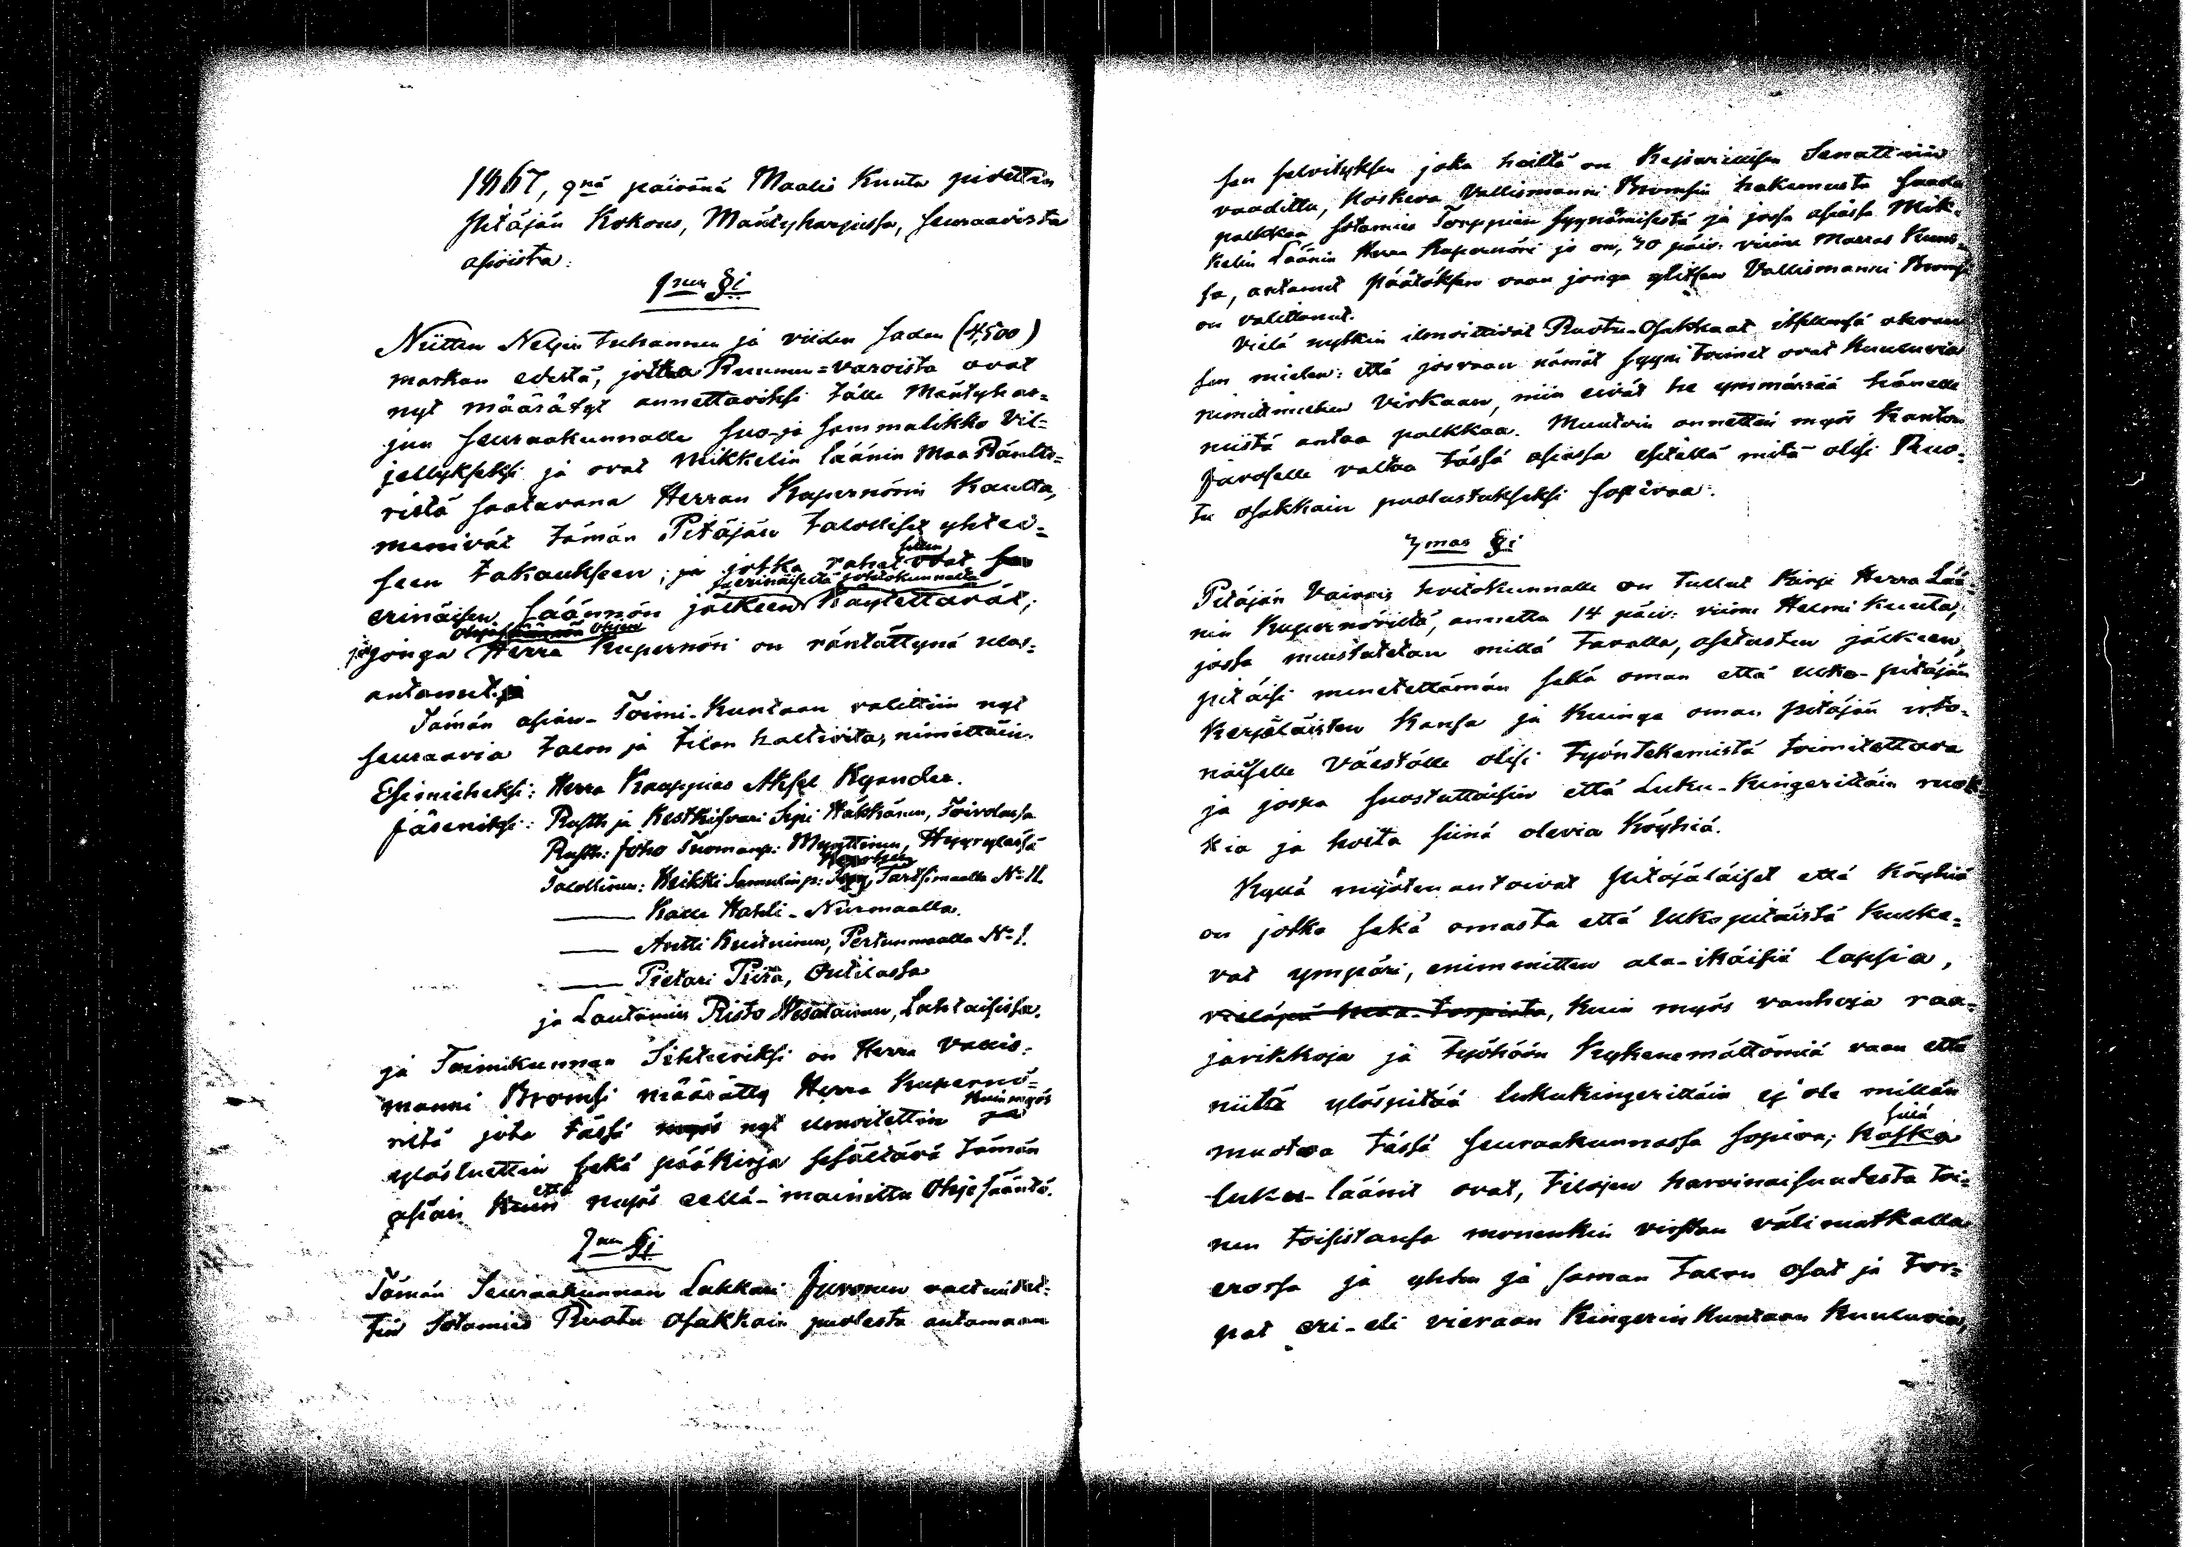 1867, 9nä päivänä Maalis Kuuta pidettin
pitäjän Kokous, Mäntyharjussa, seuraavista
asioista:
1nen §i
Niitten Neljän tuhannen ja viiden sadan (4,500)
markan edestä, jotka Ruunun-varoista ovat
nyt määrätyt annettaviksi tälle Mäntyhar=
jun seuraakunnalle suo-ja sammalikko vil=
jellykseksi ja ovat Mikkelin läänin Maa Räntte=
ristä saatavana Herran Kupernörin kautta,
menivät tämän Pitäjän talolliset yhtei=
seen takaukseen; ja jotka rahat sitten ovat
erinäisen säännön jälkeen erinäiseltä johtokunnalta Käytettävät;
ja jonga Ohjesäännön Herra Kupernöri on räntättynä ulos=
antanut.
Tämän asian-Toimi-Kuntaan valittiin nyt
seuraavia talon ja tilan haltioita, nimittäin.
Esimieheksi: Herra Kauppias Aksel Kyander.
Jäseniksi: Rusth ja Kestkisvari Sipi Häkkänen, Toivolassa
Rusth: Juho Tuomanp: Mynttinen, Hyyrylässä
Talollinen: Heikki Samulinp: Tartsimaalla No 11.
—— Kalle Hahli-Nurmaalla.
—— Antti Kuitunen, Pertunmaalla No 1.
—— Pietari Pura, Outilassa
ja Lautamies Risto Wesalainen, Lahtaisissa.
ja Toimikunnan Sihteeriksi on Herra Vallis-
manni Bromsi määrätty Herra Kupernö=
riltä jota tässä myös nyt ilmoitettiin Kuin myös
ylösluettiin sekä pääkirja sisältävä tämän
asian Kuin että myös sellä-mainittu Ohjesääntö.
2nen §i
Tämän Seuraakunnan Lukkari Juvonen valtuutet-
tiin Sotamies Ruotu Osakkain puolesta antamaan
sen selvityksen joka heiltä on Keisarillisen Senattiin
vaadittu, koskeva Vallismanni Bromsin hakemusta saada
palkkaa Sotamies Torppien syynämisestä ja jossa asiassa Mik-
kelin Läänin Herra Kupernöri jo on, 30 päiv: viime Marras Kuus=
sa, antanut Päätöksen vaan jonga ylitsen Vallismanni Bromsi
on valittanut.
Vielä nytkin ilmoittivat Ruotu-Osakkaat itsellänsä olevan
sen mielen: että jos vaan nämät syyni toimet ovat Kuuluvia
nimitmiehen Virkaan, niin eivät he ymmärrää hänelle
niistä antaa palkkaa. Muutoin annettiin myös Kantor
Juvoselle valtaa tässä asiassa esitellä mitä olisi Ruo-
tu osakkain puolustukseksi sopivaa.
3mas §i
Pitäjän Vaivais hoitokunnalle on tullut Kirje Herra Lää-
nin Kupernöriltä, annettu 14 päiv: viime Helmi Kuuta,
jossa muistutetaan millä tavalla, asetusten jälkeen,
pitäisi menetettämän sekä oman että ulko-pitäjän
Kerjäläisten Kansa ja Kuinga oman pitäjän irto-
näiselle väestölle olisi Työntekemistä toimitettava
ja jospa suostuttaisiin että Luku-Kingerittäin ruok
kia ja hoitaa siinä olevia Köyhiä.
Kyllä myöten antoivat pitäjäläiset että Köyhiä
on jotka sekä omasta että ulkopitäistä Kulke=
vat ympäri, enimmitten ala-ikäisiä lapsia,
Kuin myös vanhoja raa=
jarikkoja ja työhön Kykenemättömiä vaan että
niitä ylöspitää lukukingerittäin ej ole millän
muotoa tässä seuraakunnassa sopiva; sillä Koska
luku-läänit ovat, tilojen harvinaisuudesta toi=
nen toisistansa monenkin virstan välimatkalla
erossa ja yhden ja saman talon osat ja tor=
pat eri-eli vieraan Kingerin Kuntaan Kuuluvia,